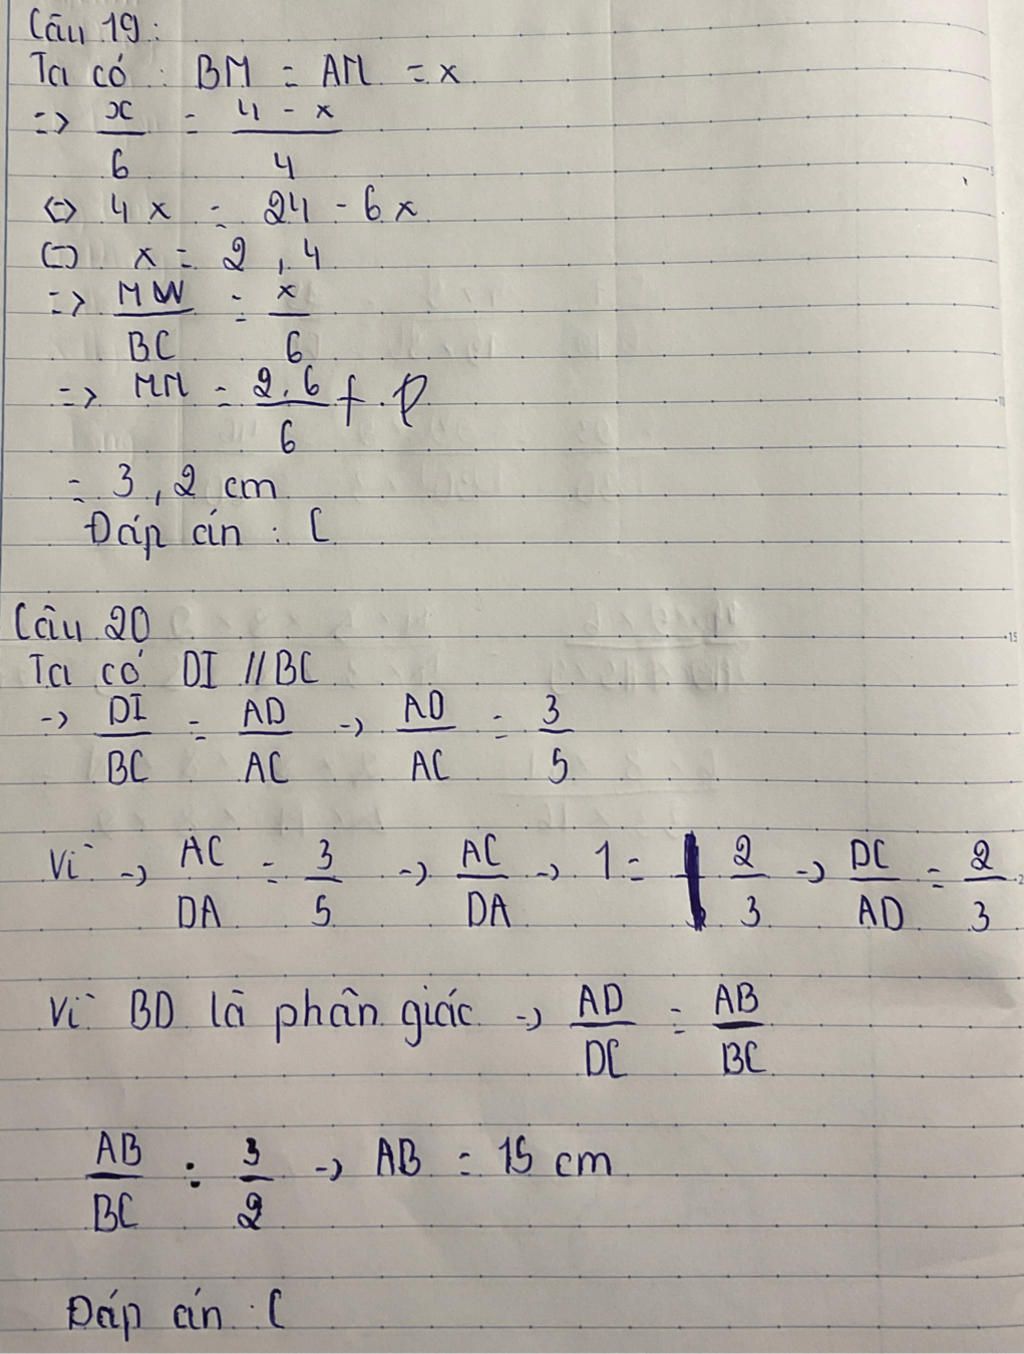 Câu 19:
Ta có: BM = AN = x
=> x/6 = (4 - x)/4
<=> 4x = 24 - 6x
<=> x = 2,4
=> MN/BC = x/6
=> MN = 2.6/6
= 3,2 cm
Đáp án: C
Câu 20
Ta có DI // BC
-> DI/BC = AD/AC -> AD/AC = 3/5
Vì -> AC/DA = 3/5 -> AC/DA -> 1 = 2/3 -> DC/AD = 2/3
Vì BD là phân giác -> AD/DC = AB/BC
AB/BC = 3/2 -> AB = 15 cm
Đáp án: C